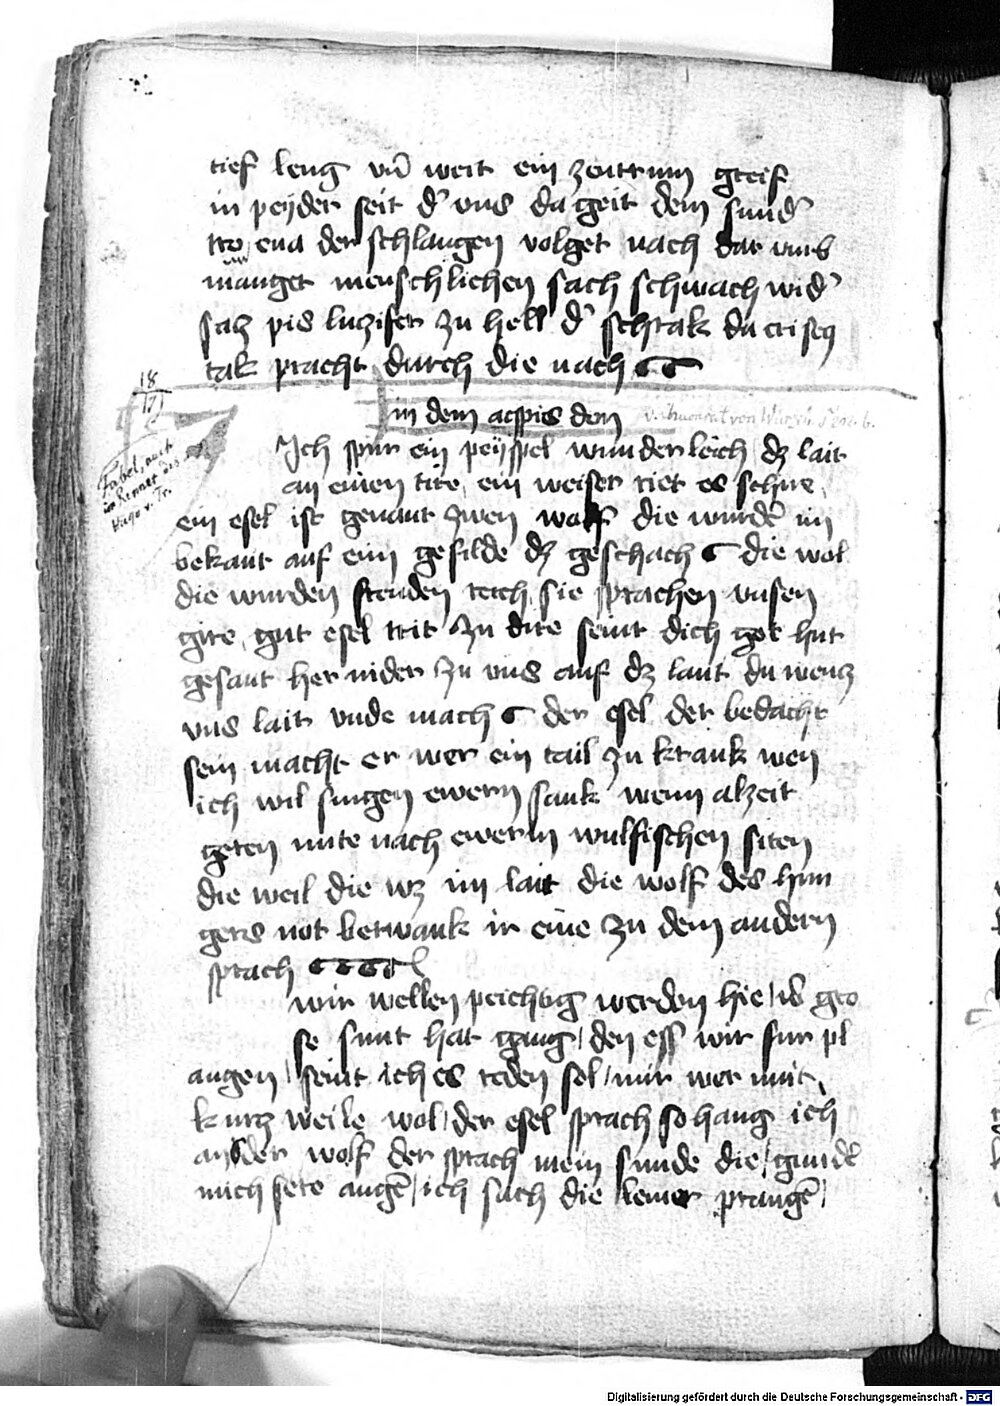 tief leng vñ weit ein zentrum greif
in peyder seit d' vns da geit dem sund'
tro eua der schlangen volget nach dar vmb
manger menschlichen sach schwach wid'
sacz pis luczifer zu hell d' schrak da crist
tak pracht durch die nach
in dem don
Ich spur ein peyspel wunderleich dz lait
an einen tire ein weiser riet es schire
ein esel ist genant zwen wolf die wurdē im
bekant auf eim gefilde dz geschach die wol
die wurden freuden reich sie sprachen vnsen
gire gut esel trit zu dire seint dich got hat
gesant her nider zu vns auf dz lant du
vns lait vnde mach der esel der bedacht
sein macht er wer ein tail zu krank wen
ich wil singen ewern sank wenn alzeit
geren mite nach ewerm wulfischen siten
die weil die wz im lait die wolf des hun
gers not betwank ir eine zu dem andern
sprach
wir wellen peichtig werden hie w gro
se sunt hat gang den ess wir fur pl
augen seint ich es reden sol mir wer mit
kurcz weile wol der esel sprach so hang ich
an der wolf der sprach mein sunde die
mich sere augē ich sach die lemer prangē
18
Fabel, auch
im Renner des
Hugo v. Tr.
Digitalisierung gefördert durch die Deutsche Forschungsgemeinschaft - DFG